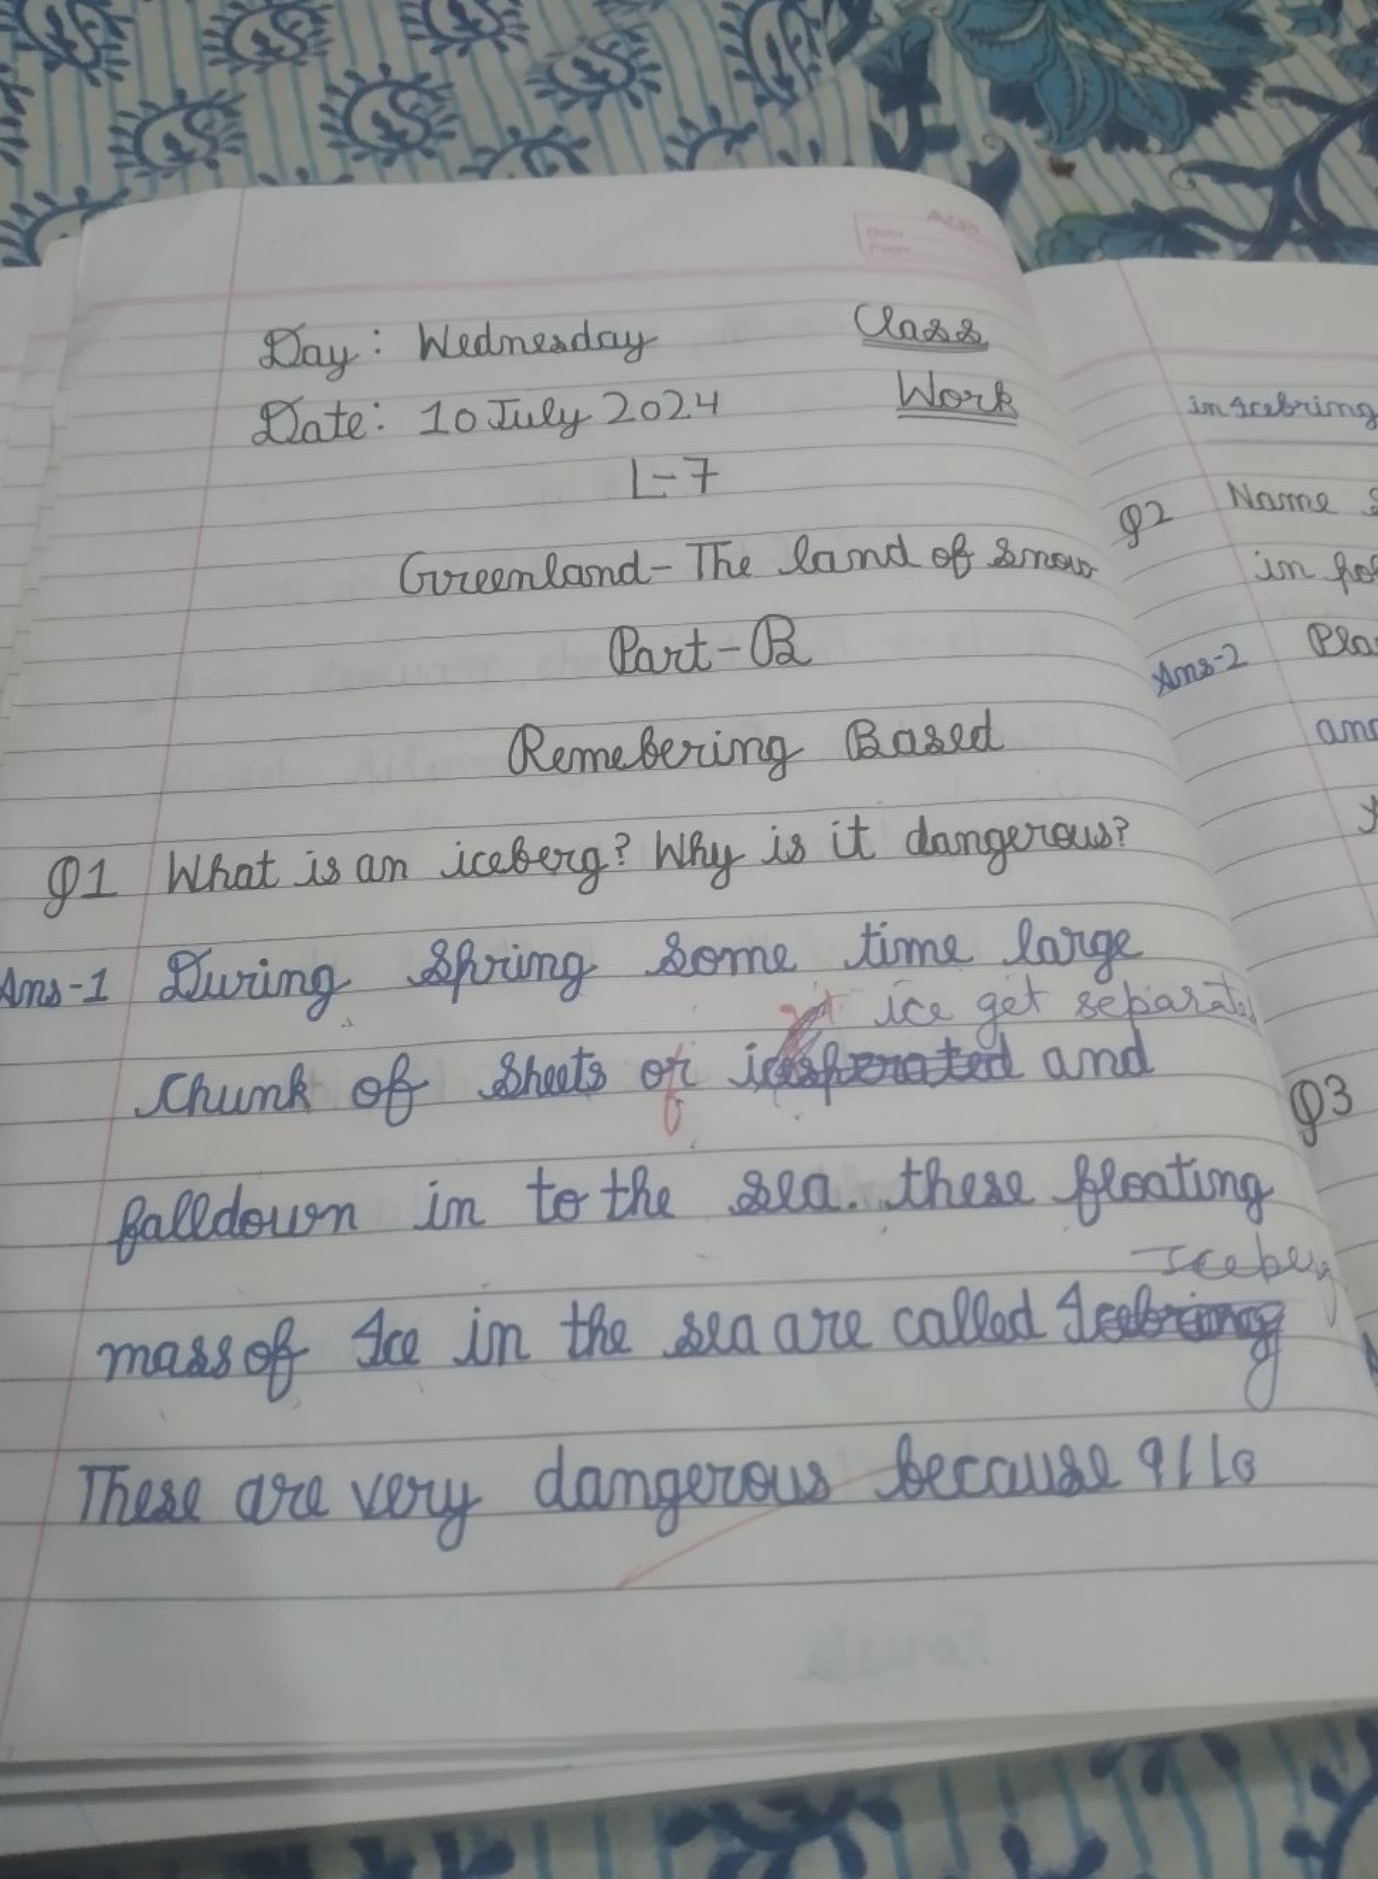 Day: Wednesday Class
Date: 10 July 2024 Work
L-7
Greenland- The land of snow
Part-B
Remebering Based
Q1 What is an iceberg? Why is it dangerous?
Ans-1 During Spring some time large
ice get separated
chunk of sheets of and
falldown in to the sea. these floating
Iceberg
mass of Ice in the sea are called Icebring
These are very dangerous because 9/10
in Icebring
Q2 Name
in
Ans-2 Pla
and
y
Q3